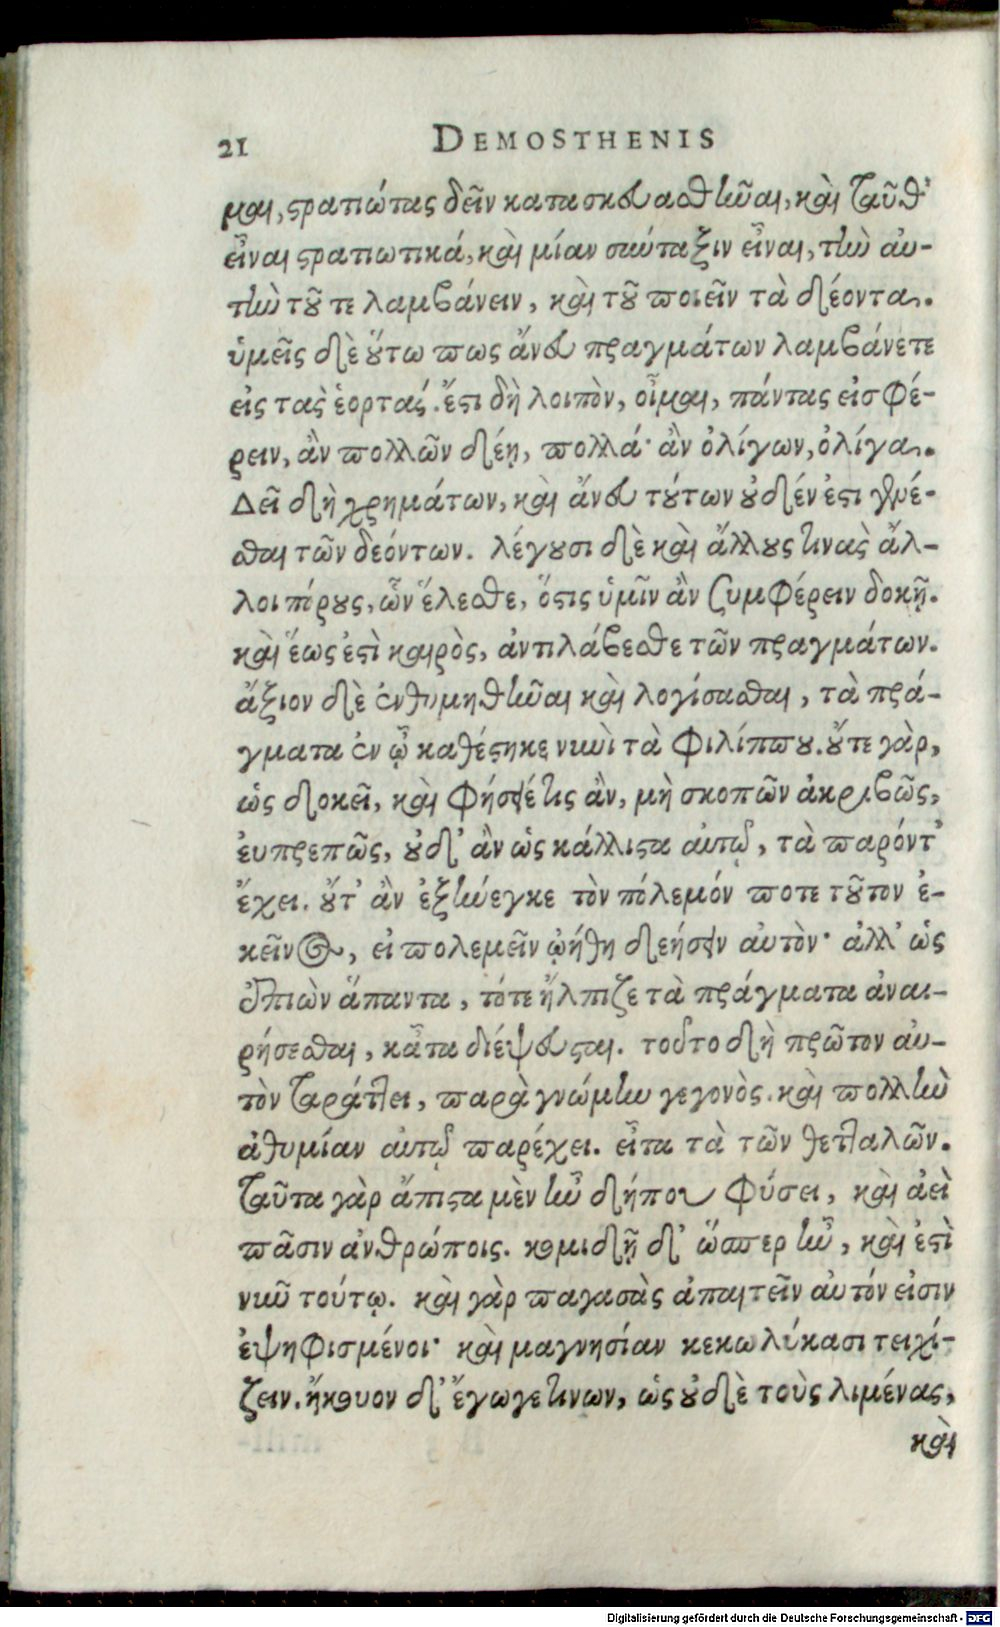 21 DEMOSTHENIS
μαι, στρατιώτας δεῖν κατασκευασθῆναι, καὶ ταῦθ'
εἶναι στρατιωτικά, καὶ μίαν σύνταξιν εἶναι, τὴν αὐ-
τὴν τοῦ τε λαμβάνειν, καὶ τοῦ ποιεῖν τὰ δέοντα.
ὑμεῖς δὲ οὕτω πως ἄνευ πραγμάτων λαμβάνετε
εἰς τὰς ἑορτάς. ἔστι δὴ λοιπὸν, οἶμαι, πάντας εἰσφέ-
ρειν, ἂν πολλῶν δέῃ, πολλά· ἂν ὀλίγων, ὀλίγα.
Δεῖ δὴ χρημάτων, καὶ ἄνευ τούτων οὐδέν ἐστι γενέ-
σθαι τῶν δεόντων. λέγουσι δὲ καὶ ἄλλους τινὰς ἄλ-
λοι πόρους, ὧν ἕλεσθε, ὅστις ὑμῖν ἂν συμφέρειν δοκῇ.
καὶ ἕως ἐστὶ καιρὸς, ἀντιλάβεσθε τῶν πραγμάτων.
ἄξιον δὲ ἐνθυμηθῆναι καὶ λογίσασθαι, τὰ πρά-
γματα ἐν ᾧ καθέστηκε νυνὶ τὰ Φιλίππου. οὔτε γὰρ,
ὡς δοκεῖ, καὶ φήσειέ τις ἂν, μὴ σκοπῶν ἀκριβῶς,
ἐυπρεπῶς, οὐδ' ἂν ὡς κάλλιστα αὐτῷ, τὰ παρόντ'
ἔχει. οὔτ' ἂν ἐξήνεγκε τὸν πόλεμόν ποτε τοῦτον ἐ-
κεῖνος, εἰ πολεμεῖν ᾠήθη δεήσειν αὐτὸν· ἀλλ' ὡς
ἐπιὼν ἅπαντα, τότε ἤλπιζε τὰ πράγματα ἀναι-
ρήσεσθαι, κᾆτα διέψευσται. τοῦτο δὴ πρῶτον αὐ-
τὸν ταράττει, παρὰ γνώμην γεγονὸς. καὶ πολλὴν
ἀθυμίαν αὐτῷ παρέχει. εἶτα τὰ τῶν θετταλῶν.
ταῦτα γὰρ ἄπιστα μὲν ἦν δήπου φύσει, καὶ ἀεὶ
πᾶσιν ἀνθρώποις. κομιδῇ δ' ὥσπερ ἦν, καὶ ἐστὶ
νῦν τούτῳ. καὶ γὰρ παγασὰς ἀπαιτεῖν αὐτόν εἰσιν
ἐψηφισμένοι· καὶ μαγνησίαν κεκωλύκασι τειχί-
ζειν. ἤκουον δ' ἔγωγέ τινων, ὡς οὐδὲ τοὺς λιμένας,
καὶ
Digitalisierung gefördert durch die Deutsche Forschungsgemeinschaft - DFG